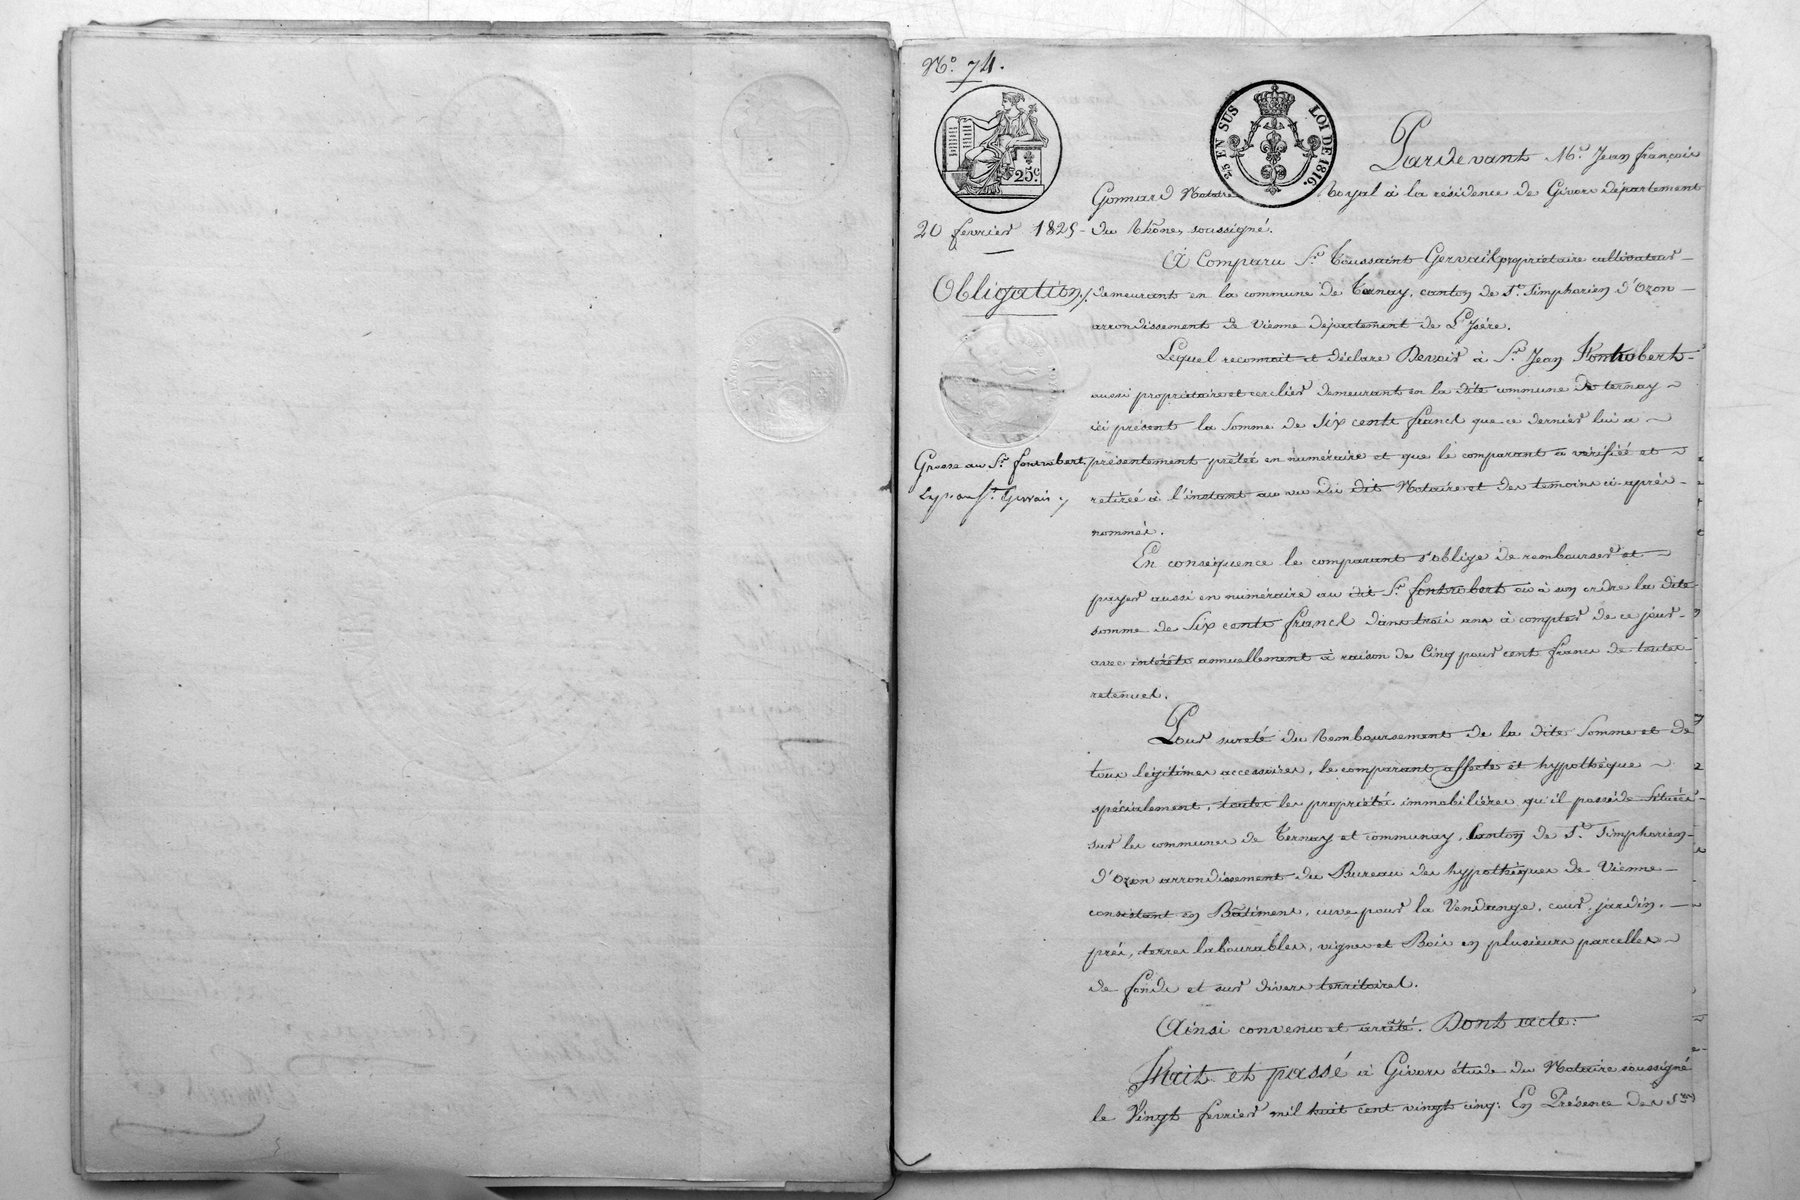 N.o 74.
25c.
25 EN SUS LOI DE 1816.
20 fevrier 1825 -
Obligation./.
Grosse au Sr. fontrobert.
au Sr. Gervais./
Pardevant Me. Jean françois
Gonnard Notaire Royal à la résidence de Givors département
du Rhône, soussigné.
A Comparu Sr. Toussaint Gervais propriétaire cultivateur
demeurant en la commune de Ternay, canton de St. Simphorien d'Ozon
arrondissement de Vienne département de L'Isére.
Lequel reconnait et déclare Devoir à Sr. Jean Fontrobert
aussi propriétaire et cerclier demeurant en la dite commune de ternay
ici présent la Somme de Six cents francs que ce dernier lui a
présentement prêtée en numéraire et que le comparant a vérifiée et
retirée à l'instant au vu du dit Notaire et des témoins ci-après
nommés.
En conséquence le comparant s'oblige de rembourser et
payer aussi en numéraire au dit Sr. fontrobert ou à son ordre la dite
somme de Six cents francs dans trois ans à compter de ce jour
avec intérêts annuellement à raison de Cinq pour cent francs de toutes
retenues.
Pour sureté du Remboursement de la dite Somme et de
tous légitimes accessoires, le comparant affecte et hypothèque
spécialement, toutes les propriétés immobilières qu'il possède Situées
sur les communes de Ternay et communay, Canton de St. Simphorien
d'Ozon arrondissement du Bureau des hypothèques de Vienne
consistant en Bâtiments, cuve pour la Vendange, cour, jardin,
prés, terres labourables, vignes et Bois en plusieurs parcelles
de fonds et sur divers territoires.
Ainsi convenu et arrêté. Dont acte:
Fait et passé à Givors étude du Notaire soussigné
le Vingt fevrier mil huit cent vingt cinq: En Présence des Srs